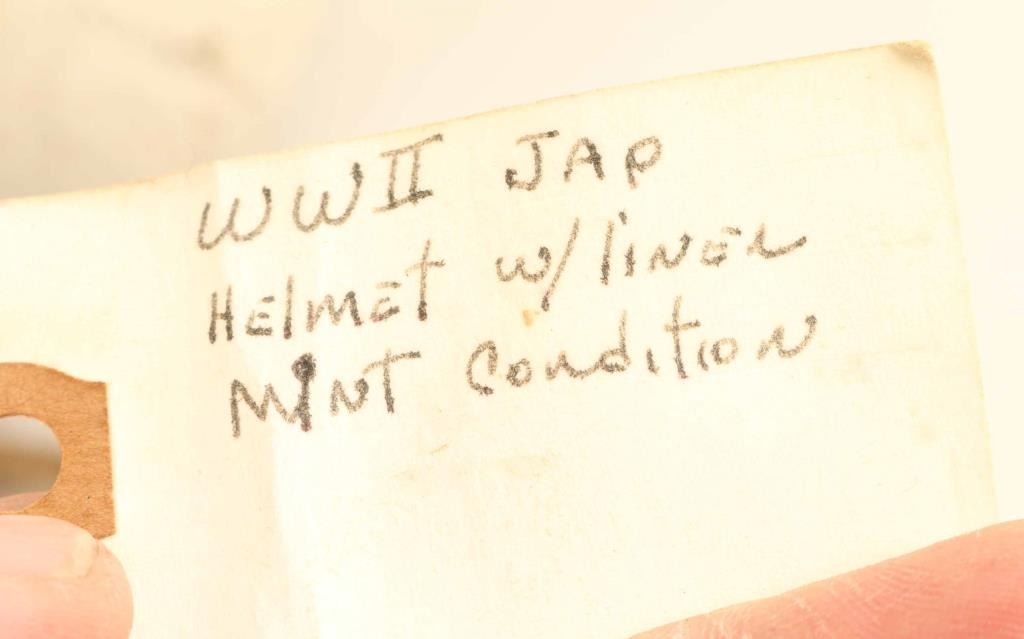 WWII JAP
HElMEt w/liNER
MINT Condition